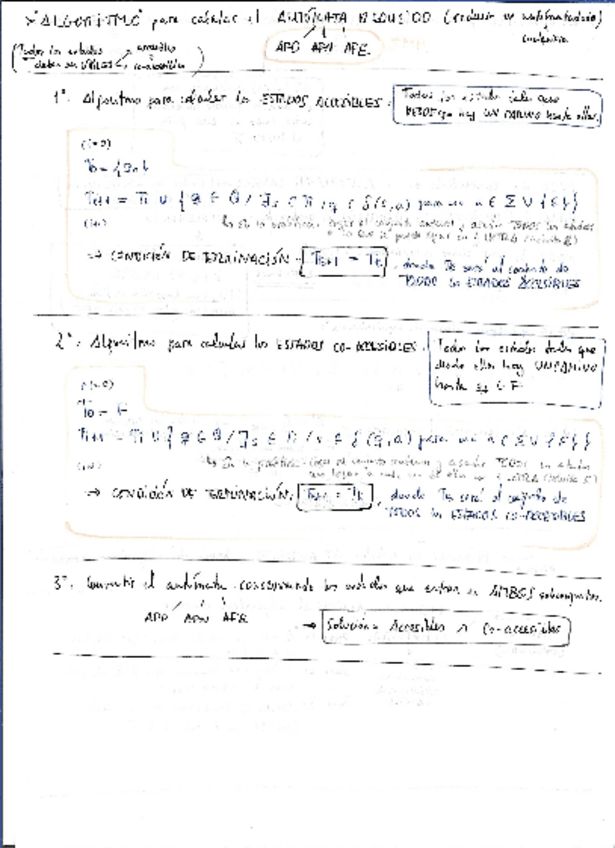 *ALGORITMO para calcular el AUTÓMATA REDUCIDO (reducir un autómata
cualquiera
(Todos los estados deben ser ÚTILES accesibles co-accesibles)
AFD AFN AFE
1º. Algoritmo para calcular los ESTADOS ACCESIBLES.
Todos los estados tales que
hay UN CAMINO hasta ellos.
(i=0)
T0 = {q0}
Ti+1 = Ti ∪ { q ∈ Q / ∃s ∈ Ti, q ∈ δ(s,a) para un a ∈ Σ ∪ {ε}}
↳ En la práctica: coger el conjunto anterior y añadir TODOS los estados
a los que se puede
→ CONDICIÓN DE TERMINACIÓN: Tk+1 = Tk, donde Tk será el conjunto de
TODOS los ESTADOS ACCESIBLES
2º. Algoritmo para calcular los ESTADOS CO-ACCESIBLES.
Todos los estados tales que
desde ellos hay UN CAMINO
hasta q ∈ F
(i=0)
T0 = F
Ti+1 = Ti ∪ { q ∈ Q / ∃s ∈ Ti / s ∈ δ(q,a) para un a ∈ Σ ∪ {ε}}
↳ En la práctica: coger el conjunto anterior y añadir TODOS los estados
→ CONDICIÓN DE TERMINACIÓN: Tk+1 = Tk, donde Tk será el conjunto de
TODOS los ESTADOS CO-ACCESIBLES
3º. Convertir el autómata conservando los estados que entran en AMBOS subconjuntos.
AFD AFN AFE
→ Solución = Accesibles ∩ Co-accesibles